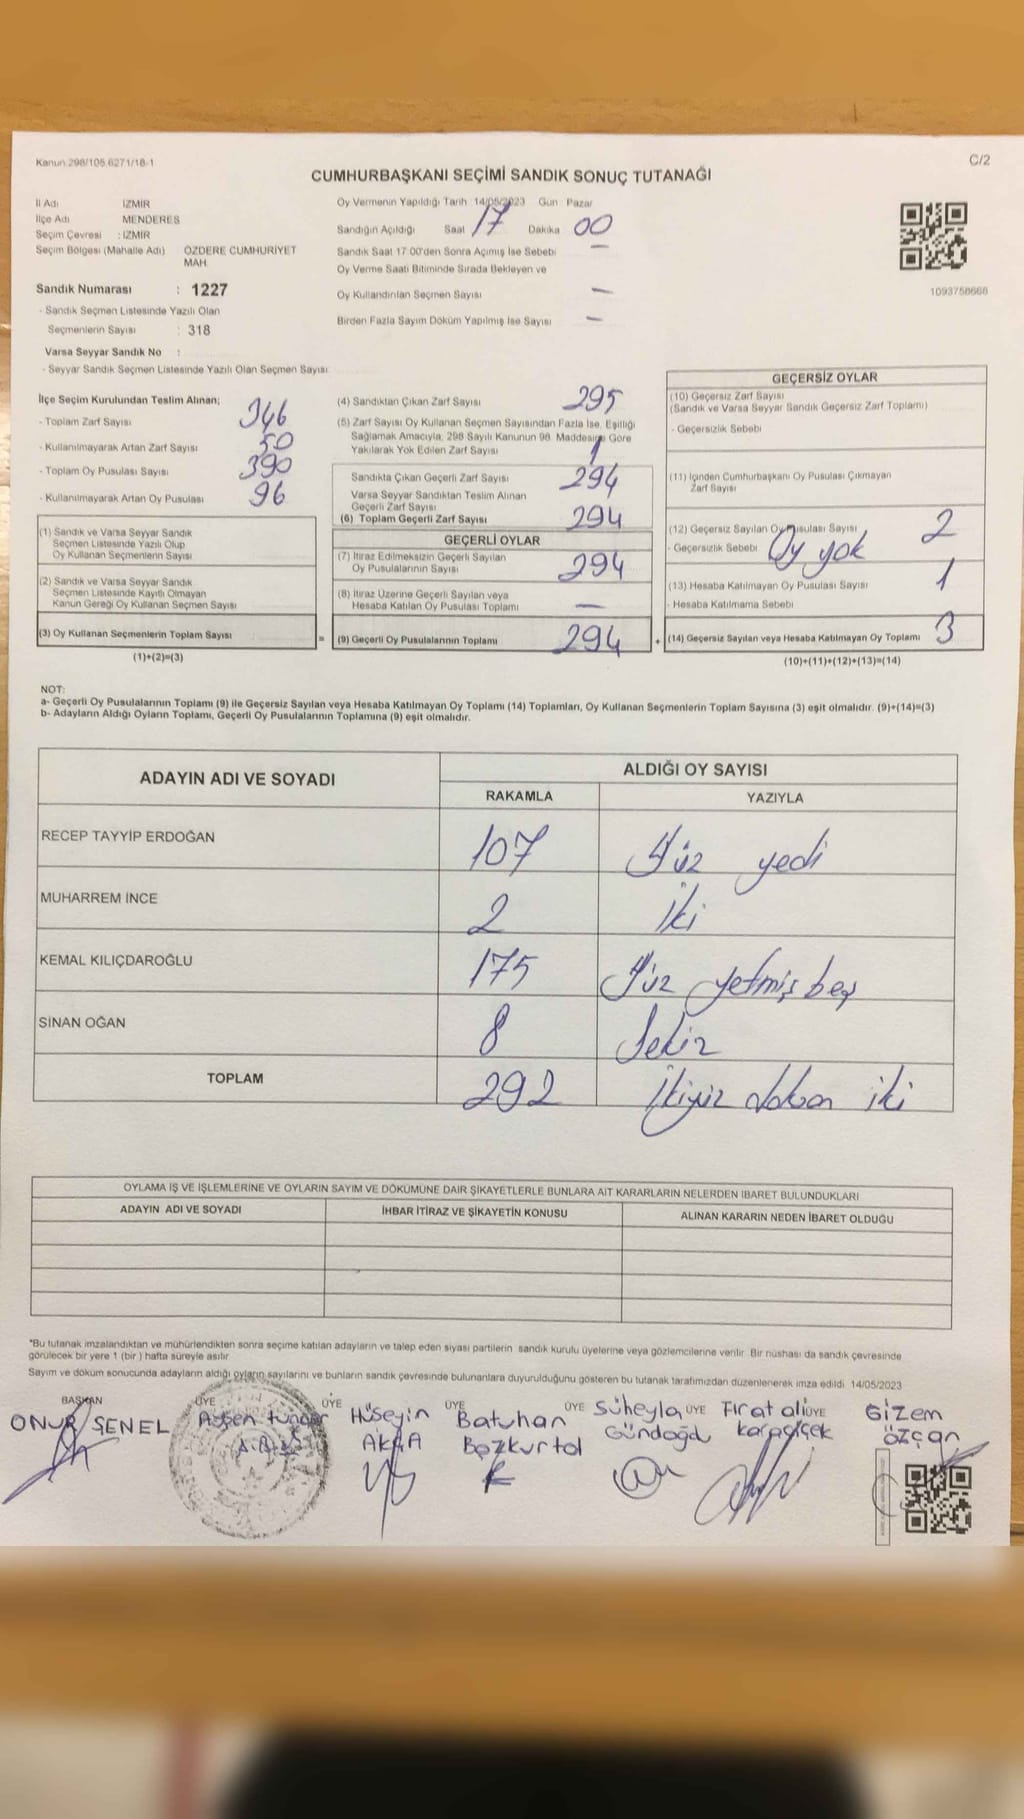 Kanun 298/105,6271/18-1
C/2
CUMHURBAŞKANI SEÇİMİ SANDIK SONUÇ TUTANAĞI
İl Adı İZMİR
İlçe Adı MENDERES
Seçim Çevresi : İZMİR
Seçim Bölgesi (Mahalle Adı) ÖZDERE CUMHURİYET MAH.
Sandık Numarası : 1227
- Sandık Seçmen Listesinde Yazılı Olan
Seçmenlerin Sayısı : 318
Varsa Seyyar Sandık No :
- Seyyar Sandık Seçmen Listesinde Yazılı Olan Seçmen Sayısı:
Oy Vermenin Yapıldığı Tarih 14/05/2023 Gün Pazar
Sandığın Açıldığı Saat 17 Dakika 00
Sandık Saat 17:00'den Sonra Açımış İse Sebebi —
Oy Verme Saati Bitiminde Sırada Bekleyen ve
Oy Kullandırılan Seçmen Sayısı —
Birden Fazla Sayım Döküm Yapılmış İse Sayısı —
1093758668
İlçe Seçim Kurulundan Teslim Alınan;
- Toplam Zarf Sayısı 346
- Kullanılmayarak Artan Zarf Sayısı 50
- Toplam Oy Pusulası Sayısı 390
- Kullanılmayarak Artan Oy Pusulası 96
(1) Sandık ve Varsa Seyyar Sandık
Seçmen Listesinde Yazılı Olup
Oy Kullanan Seçmenlerin Sayısı
(2) Sandık ve Varsa Seyyar Sandık
Seçmen Listesinde Kayıtlı Olmayan
Kanun Gereği Oy Kullanan Seçmen Sayısı
(3) Oy Kullanan Seçmenlerin Toplam Sayısı =
(1)+(2)=(3)
(4) Sandıktan Çıkan Zarf Sayısı 295
(5) Zarf Sayısı Oy Kullanan Seçmen Sayısından Fazla İse, Eşitliği
Sağlamak Amacıyla, 298 Sayılı Kanunun 98. Maddesine Göre
Yakılarak Yok Edilen Zarf Sayısı 1
Sandıkta Çıkan Geçerli Zarf Sayısı 294
Varsa Seyyar Sandıktan Teslim Alınan
Geçerli Zarf Sayısı
(6) Toplam Geçerli Zarf Sayısı 294
GEÇERLİ OYLAR
(7) İtiraz Edilmeksizin Geçerli Sayılan
Oy Pusulalarının Sayısı 294
(8) İtiraz Üzerine Geçerli Sayılan veya
Hesaba Katılan Oy Pusulası Toplamı —
(9) Geçerli Oy Pusulalarının Toplamı 294 +
GEÇERSİZ OYLAR
(10) Geçersiz Zarf Sayısı
(Sandık ve Varsa Seyyar Sandık Geçersiz Zarf Toplamı)
- Geçersizlik Sebebi
(11) İçinden Cumhurbaşkanı Oy Pusulası Çıkmayan
Zarf Sayısı
(12) Geçersiz Sayılan Oy Pusulası Sayısı 2
- Geçersizlik Sebebi Oy yok
(13) Hesaba Katılmayan Oy Pusulası Sayısı 1
- Hesaba Katılmama Sebebi
(14) Geçersiz Sayılan veya Hesaba Katılmayan Oy Toplamı 3
(10)+(11)+(12)+(13)=(14)
NOT:
a- Geçerli Oy Pusulalarının Toplamı (9) ile Geçersiz Sayılan veya Hesaba Katılmayan Oy Toplamı (14) Toplamları, Oy Kullanan Seçmenlerin Toplam Sayısına (3) eşit olmalıdır. (9)+(14)=(3)
b- Adayların Aldığı Oyların Toplamı, Geçerli Oy Pusulalarının Toplamına (9) eşit olmalıdır.
ADAYIN ADI VE SOYADI
ALDIĞI OY SAYISI
RAKAMLA YAZIYLA
RECEP TAYYİP ERDOĞAN 107 Yüz yedi
MUHARREM İNCE 2 İki
KEMAL KILIÇDAROĞLU 175 Yüz yetmiş beş
SİNAN OĞAN 8 Sekiz
TOPLAM 292 İkiyüz doksan iki
OYLAMA İŞ VE İŞLEMLERİNE VE OYLARIN SAYIM VE DÖKÜMÜNE DAİR ŞİKAYETLERLE BUNLARA AİT KARARLARIN NELERDEN İBARET BULUNDUKLARI
ADAYIN ADI VE SOYADI İHBAR İTİRAZ VE ŞİKAYETİN KONUSU ALINAN KARARIN NEDEN İBARET OLDUĞU
*Bu tutanak imzalandıktan ve mühürlendikten sonra seçime katılan adayların ve talep eden siyasi partilerin sandık kurulu üyelerine veya gözlemcilerine verilir. Bir nüshası da sandık çevresinde
görülecek bir yere 1 (bir ) hafta süreyle asılır
Sayım ve döküm sonucunda adayların aldığı oyların sayılarını ve bunların sandık çevresinde bulunanlara duyurulduğunu gösteren bu tutanak tarafımızdan düzenlenerek imza edildi. 14/05/2023
BAŞKAN ÜYE ÜYE ÜYE ÜYE ÜYE ÜYE
ONUR ŞENEL Ayşen tuncer Hüseyin AKÇA Batuhan Bozkurtol Süheyla Gündoğdu Fırat ali karaçiçek Gizem özçan